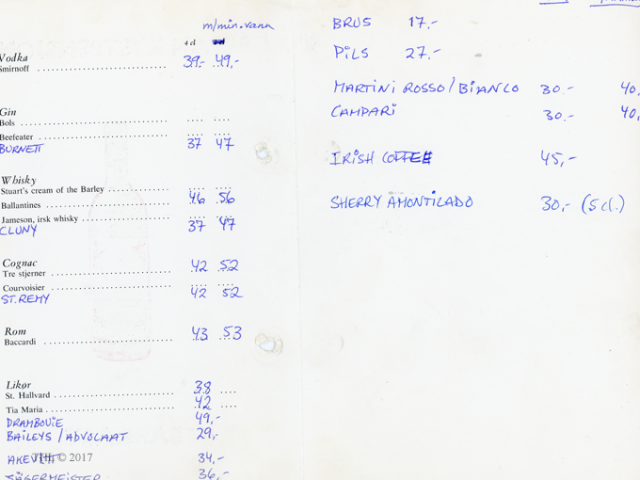 m/min.vann
4 cl
Vodka
Smirnoff 39,- 49,-
Gin
Bols
Beefeater
BURNETT 37 47
Whisky
Stuart's cream of the Barley
Ballantines 46 56
Jameson, irsk whisky
CLUNY 37 47
Cognac
Tre stjerner 42 52
Courvoisier
ST. REMY 42 52
Rom
Baccardi 43 53
Likør
St. Hallvard 38
Tia Maria 42
DRAMBOUIE 49,-
BAILEYS / ADVOCAAT 29,-
AKEVITT 34,-
© 2017
JÄGERMEISTER 36,-
BRUS 17.-
PILS 27.-
MARTINI ROSSO/BIANCO 30.- 40,
CAMPARI 30.- 40,
IRISH COFFEE 45,-
SHERRY AMONTILADO 30,- (5 cl.)